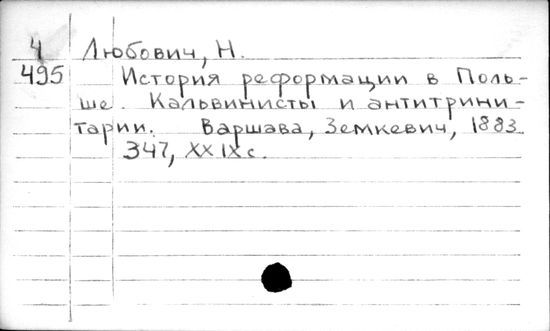 4 Любович, Н.
495 История реформации в Поль-
ше. Кальвинисты и антитрини-
тарии. Варшава, Земкевич, 1883.
347, XXIX с.